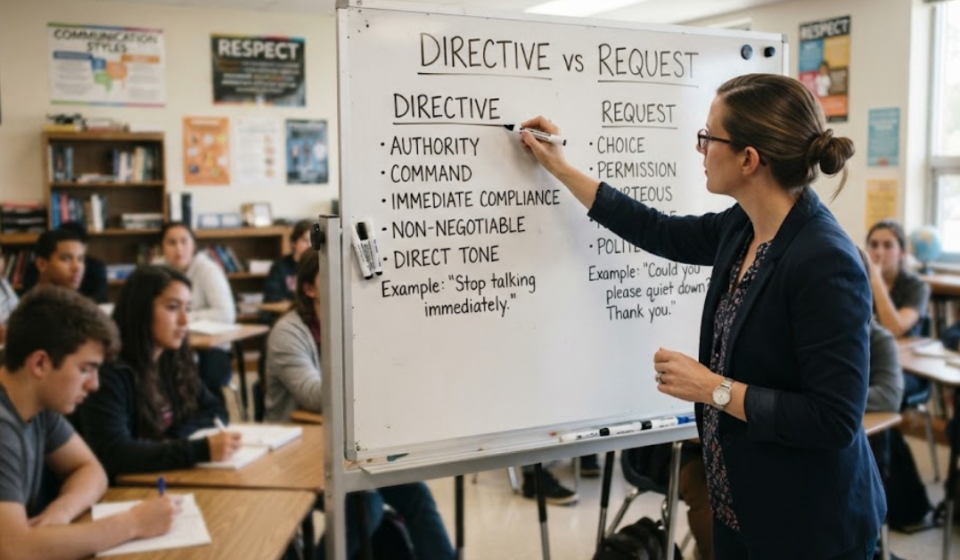 COMMUNICATION STYLES
RESPECT
RESPECT
DIRECTIVE vs REQUEST
DIRECTIVE
• AUTHORITY
• COMMAND
• IMMEDIATE COMPLIANCE
• NON-NEGOTIABLE
• DIRECT TONE
Example: "Stop talking
immediately."
REQUEST
• CHOICE
• PERMISSION
Example: "Could you
please quiet down?
Thank you."